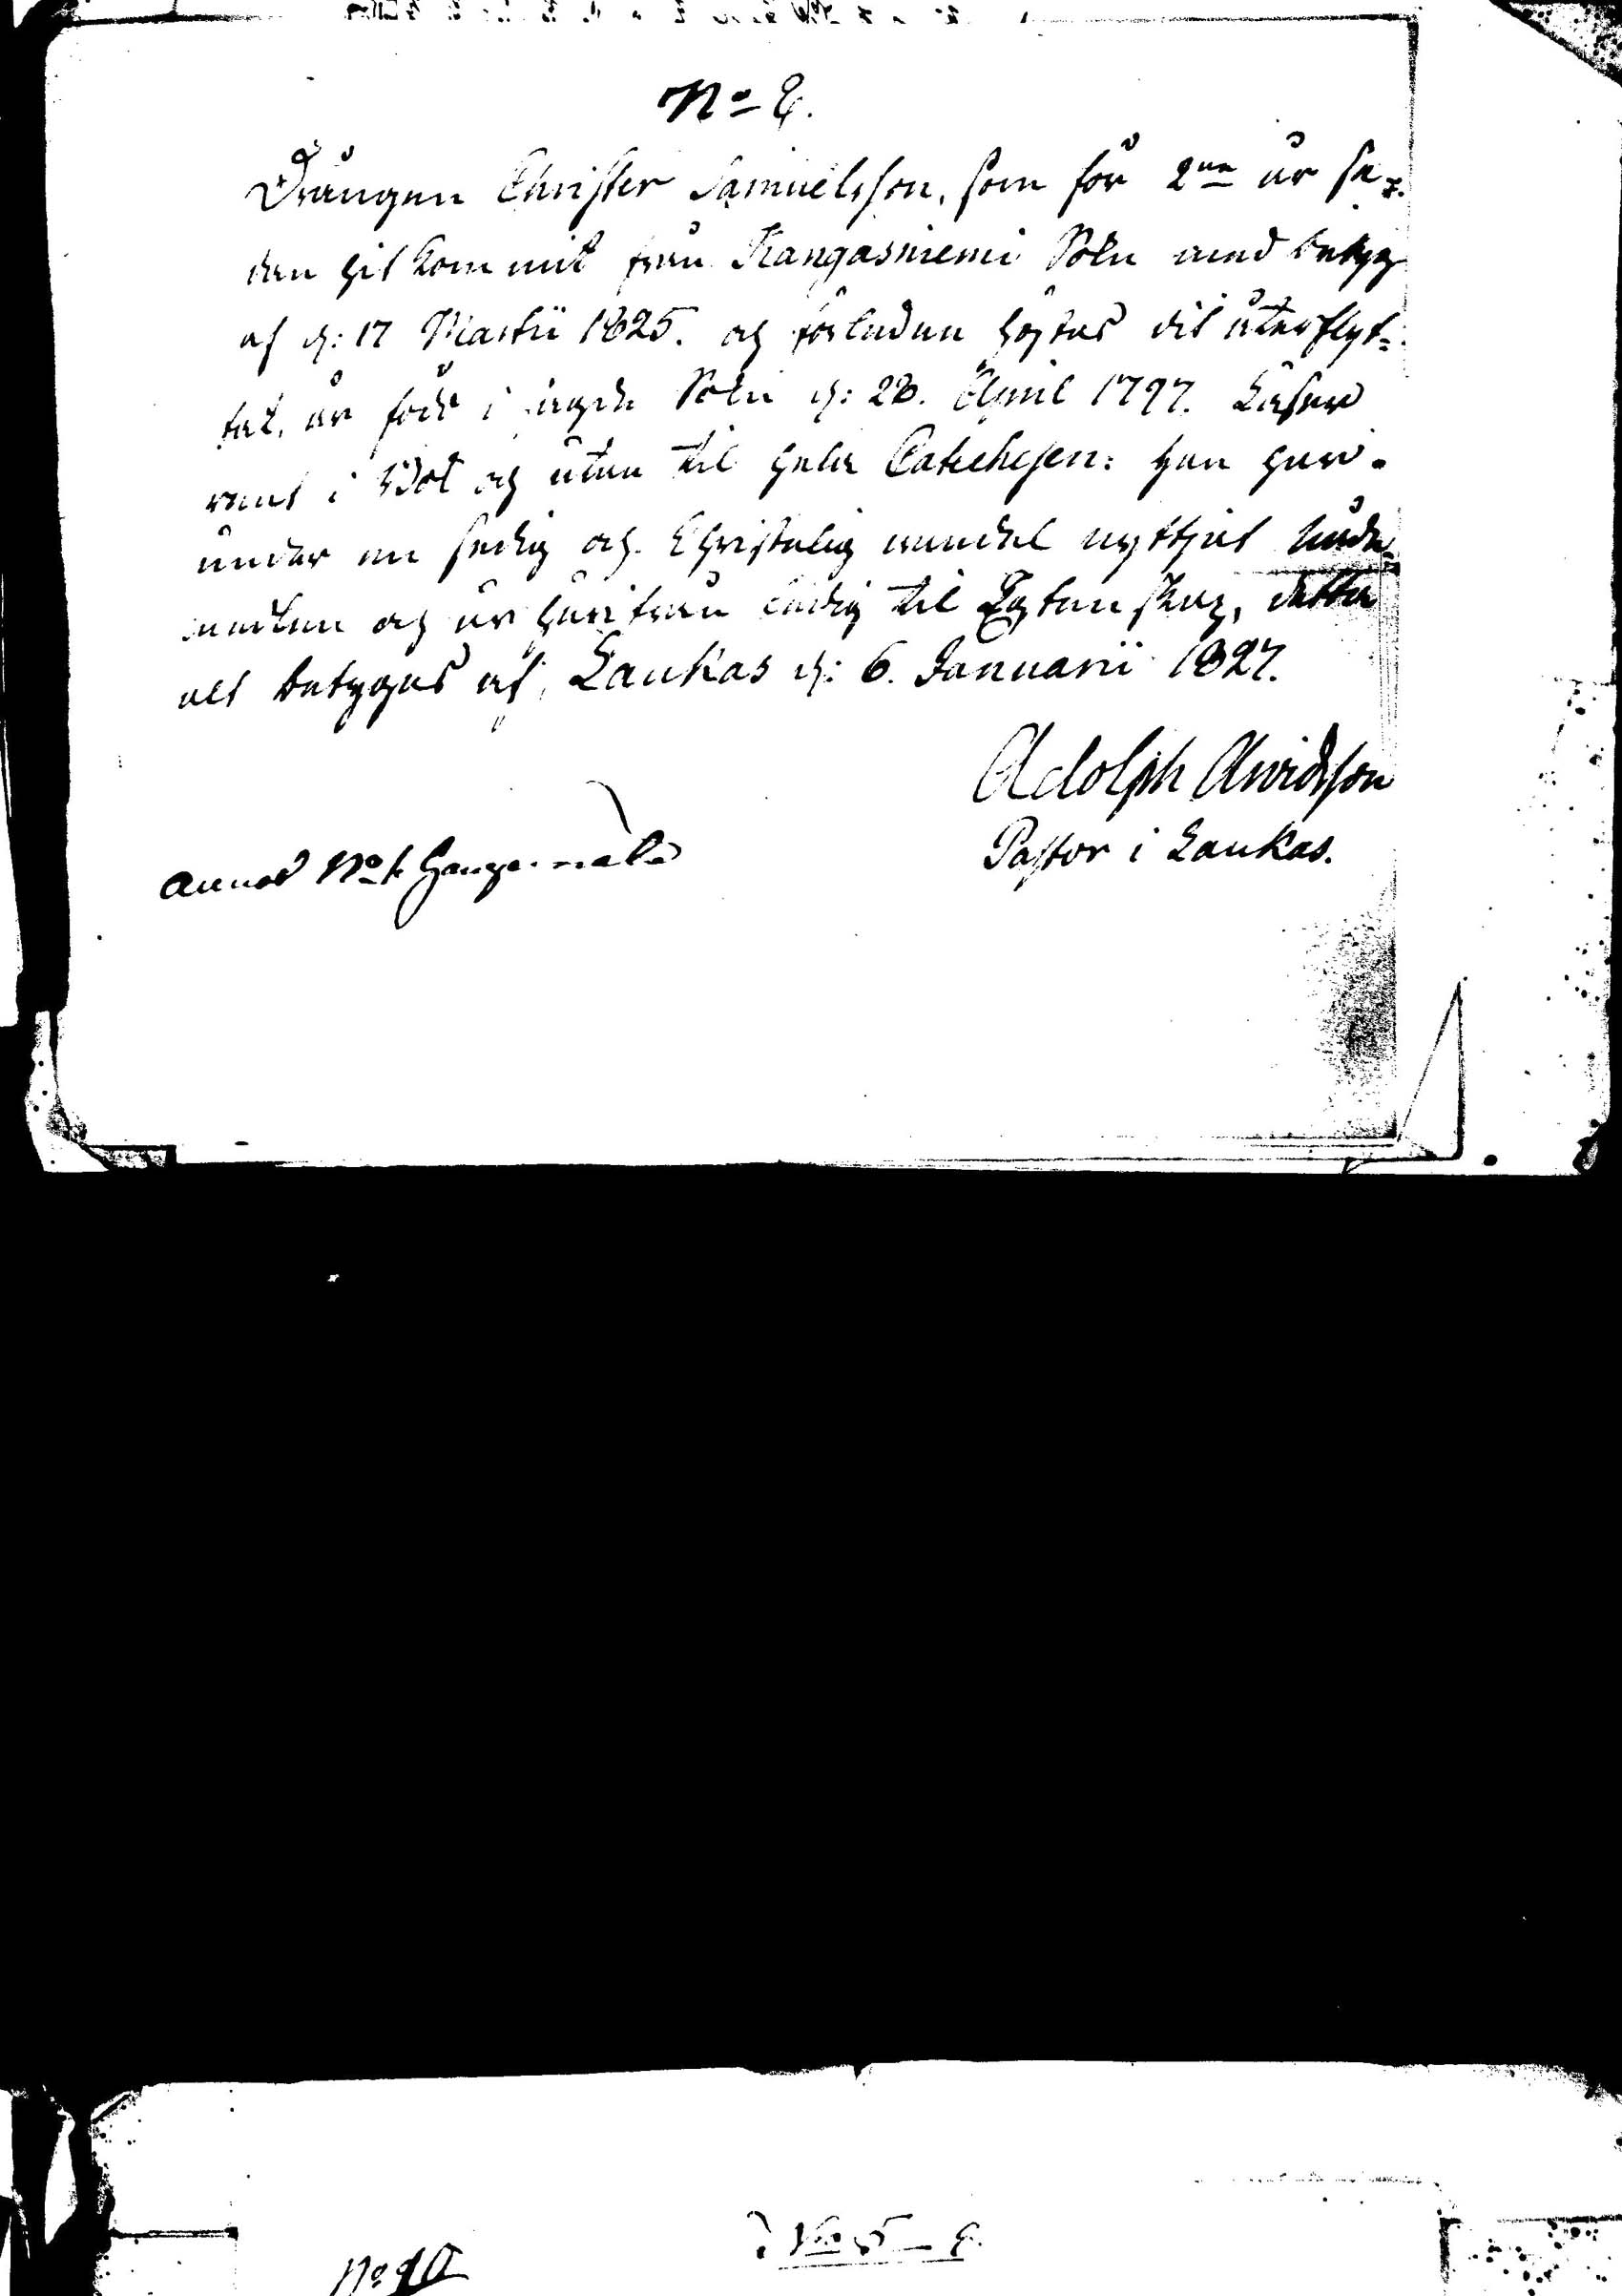 No 2.
Drängen Christer Samuelsson, som för 2ne år se=
dan hit kommit från Kangasniemi Sokn med betyg
af d: 17 Martii 1825. och förledne höstas dit återflyt=
tat, är född i sagde Sokn d: 28. April 1797. Läser
rent i Bok och utan til hela Catechesen: han har
under en sedig och Christelig wandel nyttjat Nåde=
medlen och är härifrån ledig til Ægtenskap, detta
alt betygas af, Laukas d: 6. Januarii 1827.
Adolph Arwidsson
Pastor i Laukas.
No 10